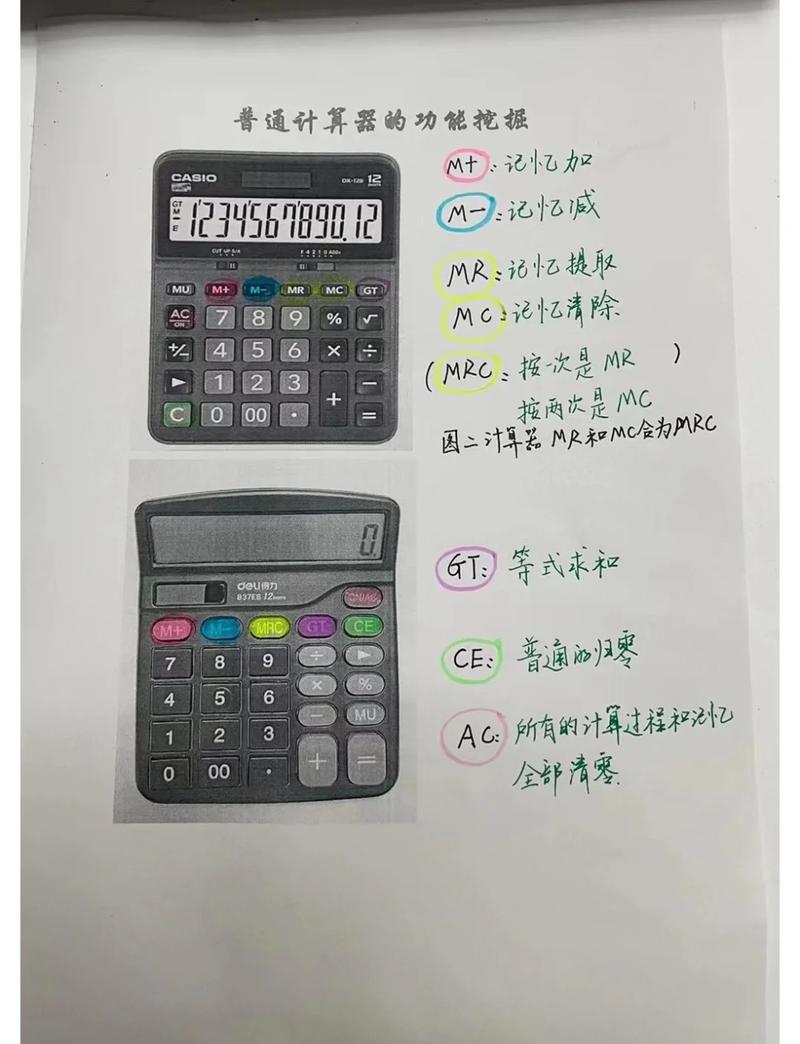 普通计算器的功能挖掘
CASIO
DX-12B 12
GT
M
E
1'234'567'890.12
CUT UP 5/4
F 4 2 1 0 ADD2
MU M+ M- MR MC GT
AC 7 8 9 % √
ON
+/- 4 5 6 × ÷
▶ 1 2 3 + −
C 0 00 · =
M+: 记忆加
M-: 记忆减
MR: 记忆提取
MC: 记忆清除
(MRC: 按一次是MR)
按两次是MC
图二计算器MR和MC合为MRC
0.
deli得力
837ES 12
M+ M- MRC GT CE
7 8 9 ÷ ▶
4 5 6 × %
1 2 3 − MU
0 00 · + =
GT: 等式求和
CE: 普通的归零
AC: 所有的计算过程和记忆
全部清零.